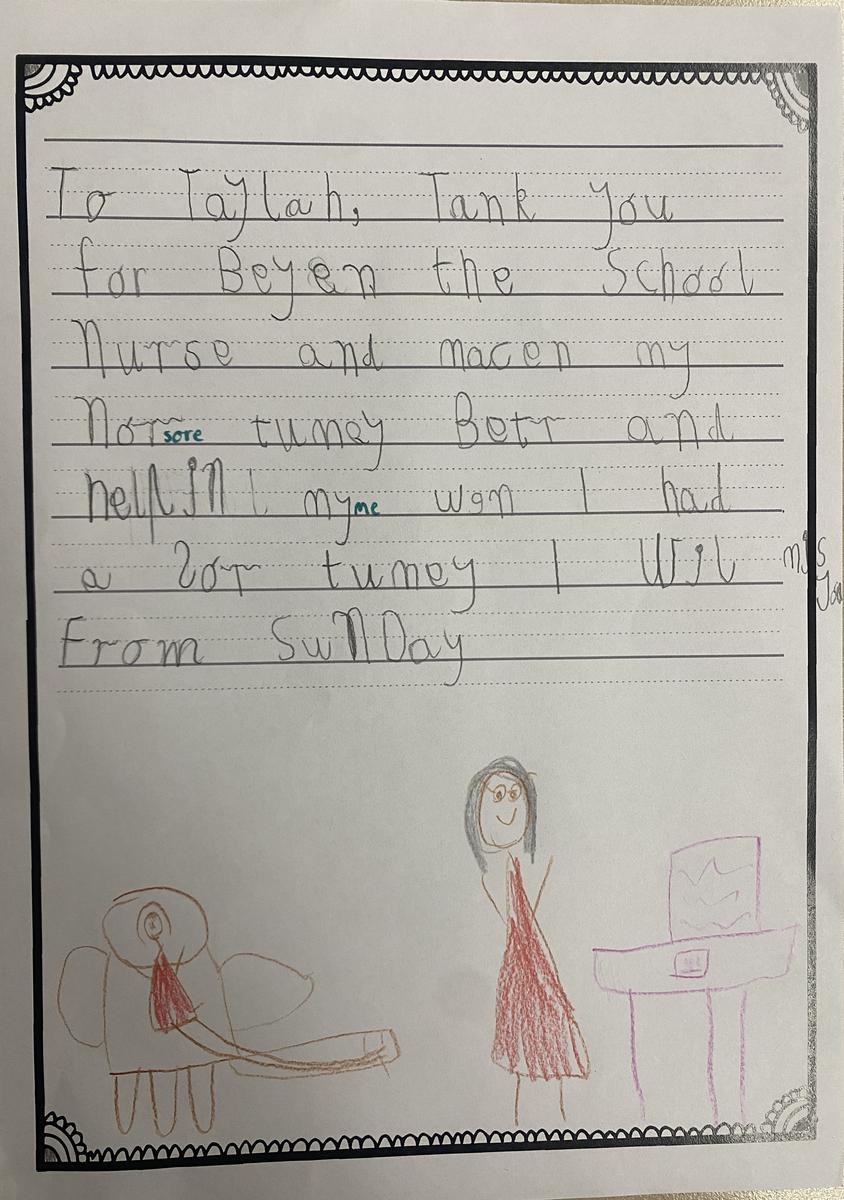 To Taylah, Tank you
for Beyen the School
Nurse and macen my
Nor sore tumey Betr and
helpin my me wen I had
a Sor tumey I Wil mis you
From SuNDay